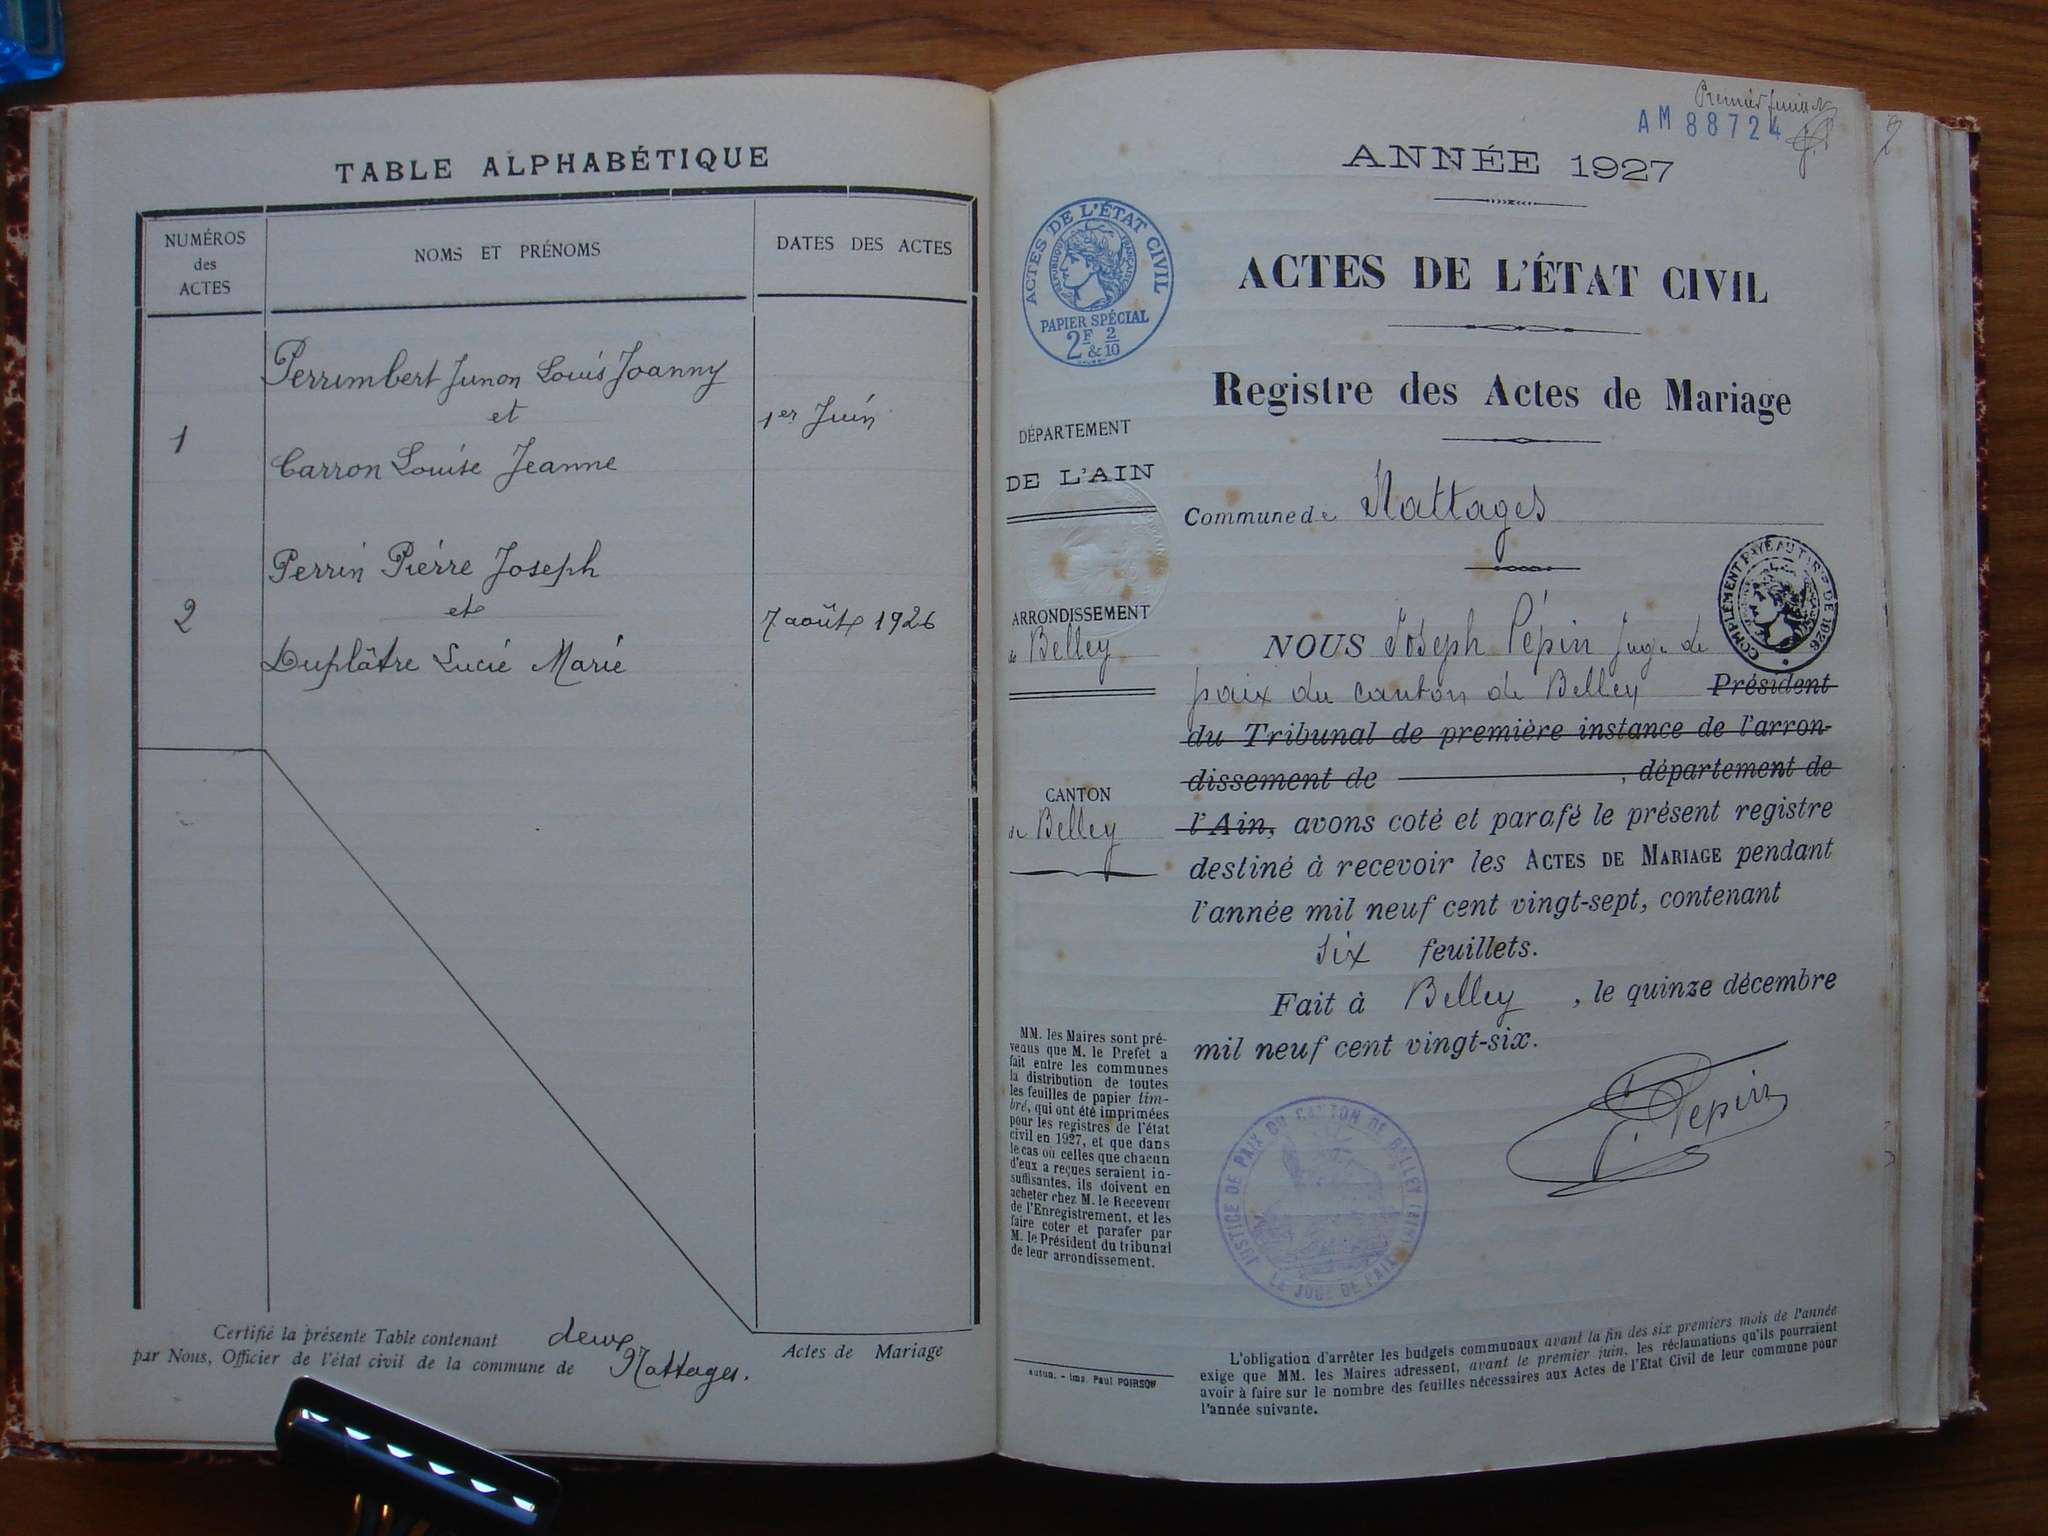 TABLE ALPHABÉTIQUE
NUMÉROS
des
ACTES
NOMS ET PRÉNOMS
DATES DES ACTES
1
Perrimbert Junon Louis Joanny
et
Carron Louise Jeanne
1er Juin
2
Perrin Pierre Joseph
et
Duplâtre Lucie Marie
7 août 1926
Certifié la présente Table contenant deux Actes de Mariage
par Nous, Officier de l'état civil de la commune de Nattages.
Premier feuillet
AM 88724
2
ANNÉE 1927
ACTES DE L'ÉTAT CIVIL
RÉPUBLIQUE FRANÇAISE
PAPIER SPÉCIAL
2F & 2/10
ACTES DE L'ÉTAT CIVIL
Registre des Actes de Mariage
DÉPARTEMENT
DE L'AIN
Commune de Nattages
COMPLÉMENT PAYÉ AU TARIF DE 1926
ARRONDISSEMENT
de Belley
CANTON
de Belley
NOUS Joseph Pépin Juge de
paix du canton de Belley Président
du Tribunal de première instance de l'arron-
dissement de , département de
l'Ain, avons coté et parafé le présent registre
destiné à recevoir les ACTES DE MARIAGE pendant
l'année mil neuf cent vingt-sept, contenant
six feuillets.
Fait à Belley, le quinze décembre
mil neuf cent vingt-six.
Pépin
JUSTICE DE PAIX DU CANTON DE BELLEY (AIN)
LE JUGE DE PAIX
MM. les Maires sont pré-
venus que M. le Prefet a
fait entre les communes
la distribution de toutes
les feuilles de papier tim-
bré, qui ont été imprimées
pour les registres de l'état
civil en 1927, et que dans
le cas où celles que chacun
d'eux a reçues seraient in-
suffisantes, ils doivent en
acheter chez M. le Receveur
de l'Enregistrement, et les
faire coter et parafer par
M. le Président du tribunal
de leur arrondissement.
Autun. - Imp. Paul POIRSON
L'obligation d'arrêter les budgets communaux avant la fin des six premiers mois de l'année
exige que MM. les Maires adressent, avant le premier juin, les réclamations qu'ils pourraient
avoir à faire sur le nombre des feuilles nécessaires aux Actes de l'Etat Civil de leur commune pour
l'année suivante.